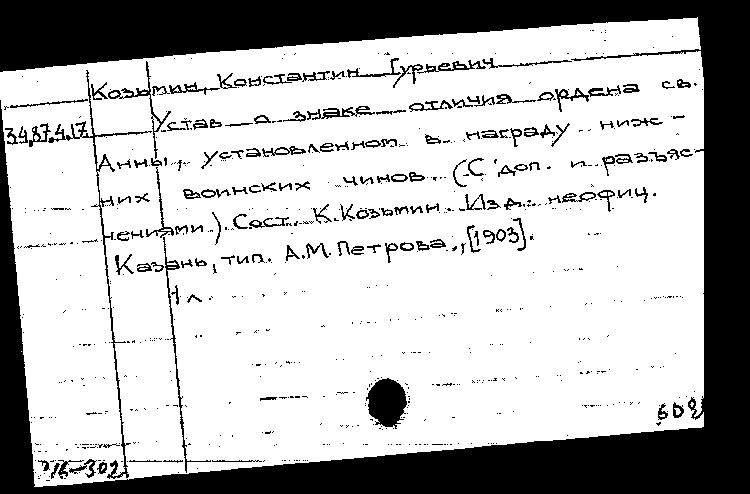 Козьмин, Константин Гурьевич
34.87.4.17
Устав о знаке отличия ордена св.
Анны, установленном в награду ниж-
них воинских чинов. (С доп. и разъяс-
нениями). Сост. К. Козьмин. Изд. неофиц.
Казань, тип. А.М. Петрова, [1903].
1 л.
716-302